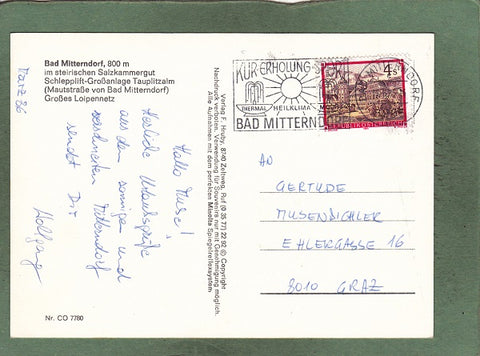 Bad Mitterndorf, 800 m
im steirischen Salzkammergut
Schlepplift-Großanlage Tauplitzalm
(Mautstraße von Bad Mitterndorf)
Großes Loipennetz
März 86
Hallo Musc!
Herzliche Urlaubsgrüße
aus dem sonnigen und
verschneiten Mitterndorf
sendet Dir
Wolfgang
Nr. CO 7780
Verlag F. Hruby, 8740 Zeltweg, Ruf (0 35 77) 22 92 © Copyright
Nachdruck verboten. Verwendung für Souvenirs nur mit Genehmigung möglich.
Alle Aufnahmen mit dem perfekten Minolta Spiegelreflexsystem
KUR·ERHOLUNG·SPORT
THERMAL
HEILKLIMA
BAD MITTERNDORF
4 S
REPUBLIK ÖSTERREICH
AN
GERTUDE
MUSENBICHLER
EHLERGASSE 16
8010 GRAZ